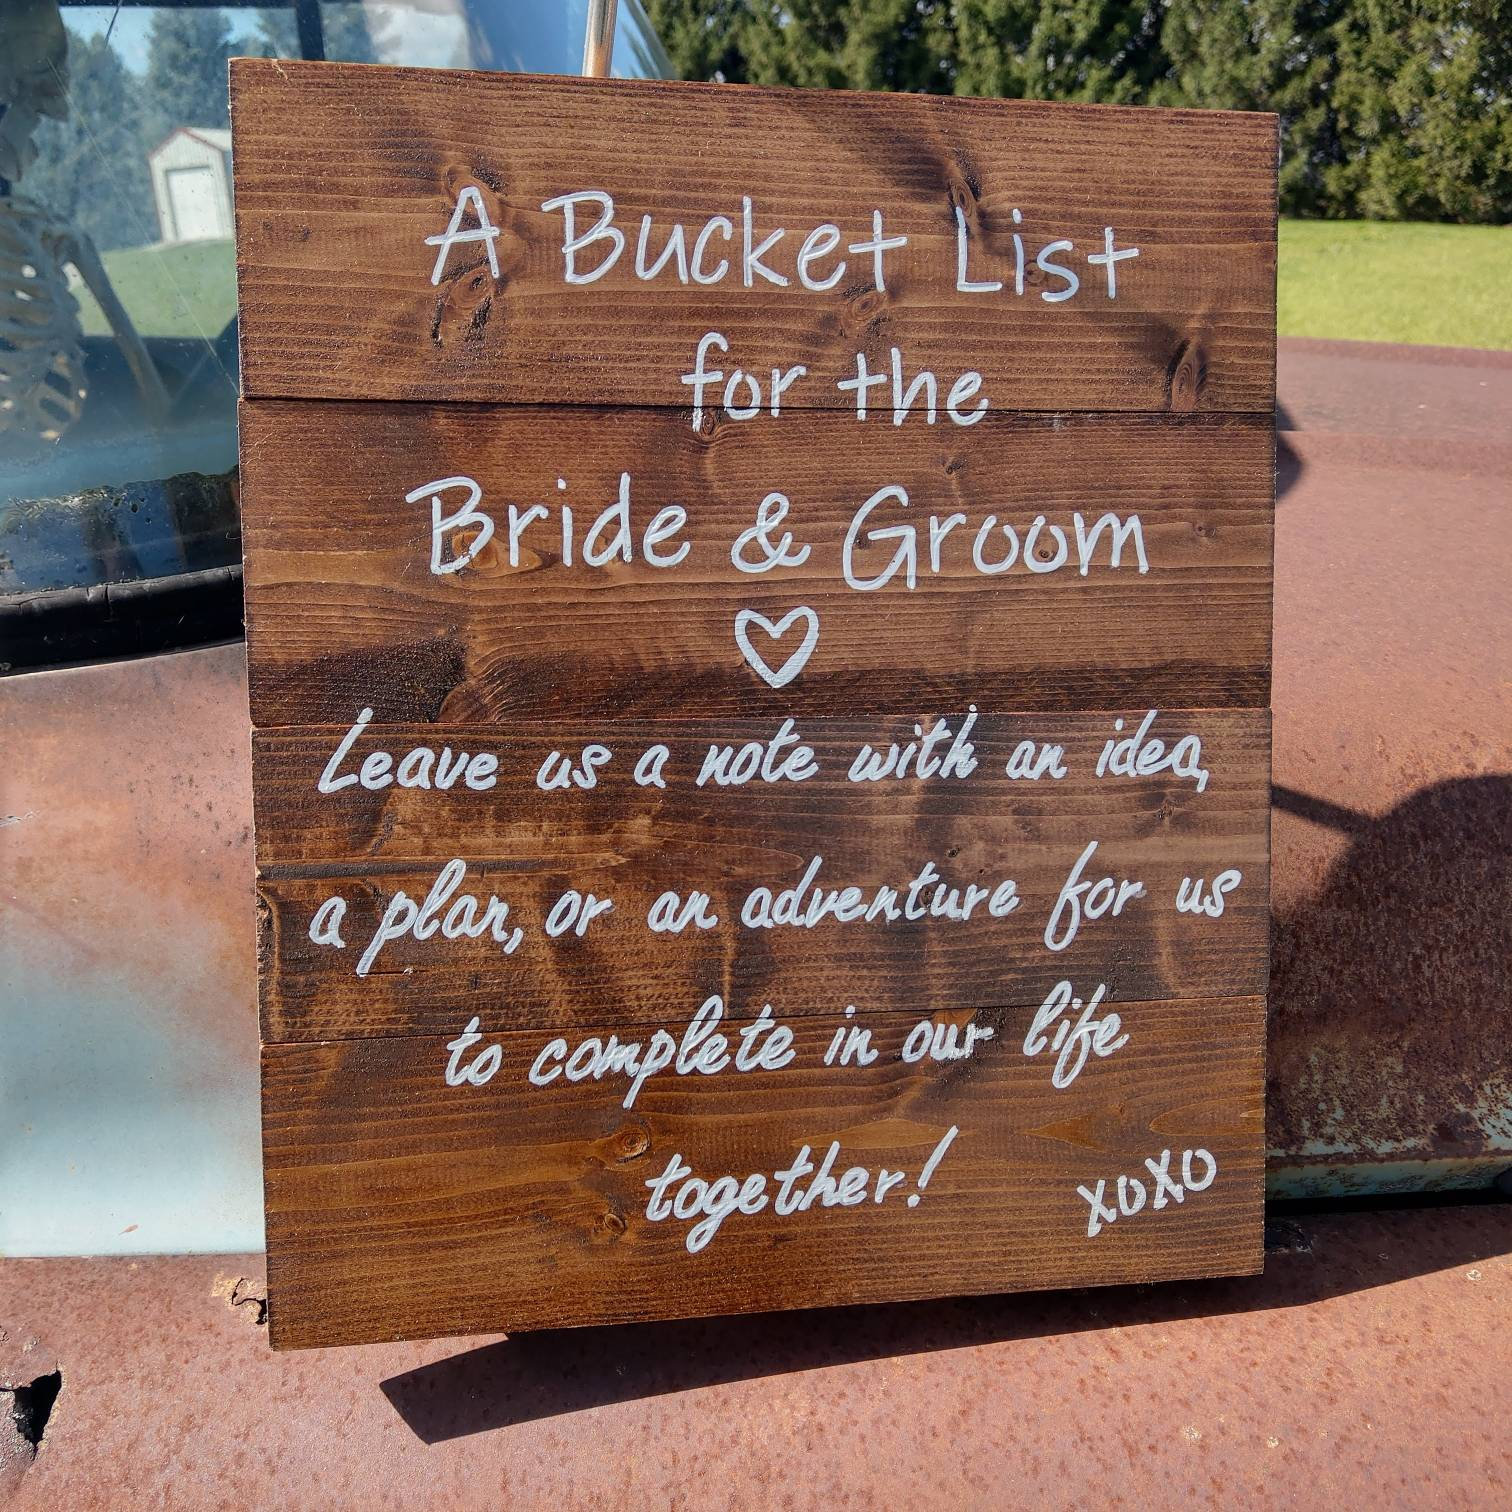 A Bucket List
for the
Bride & Groom
Leave us a note with an idea,
a plan, or an adventure for us
to complete in our life
together!
XOXO